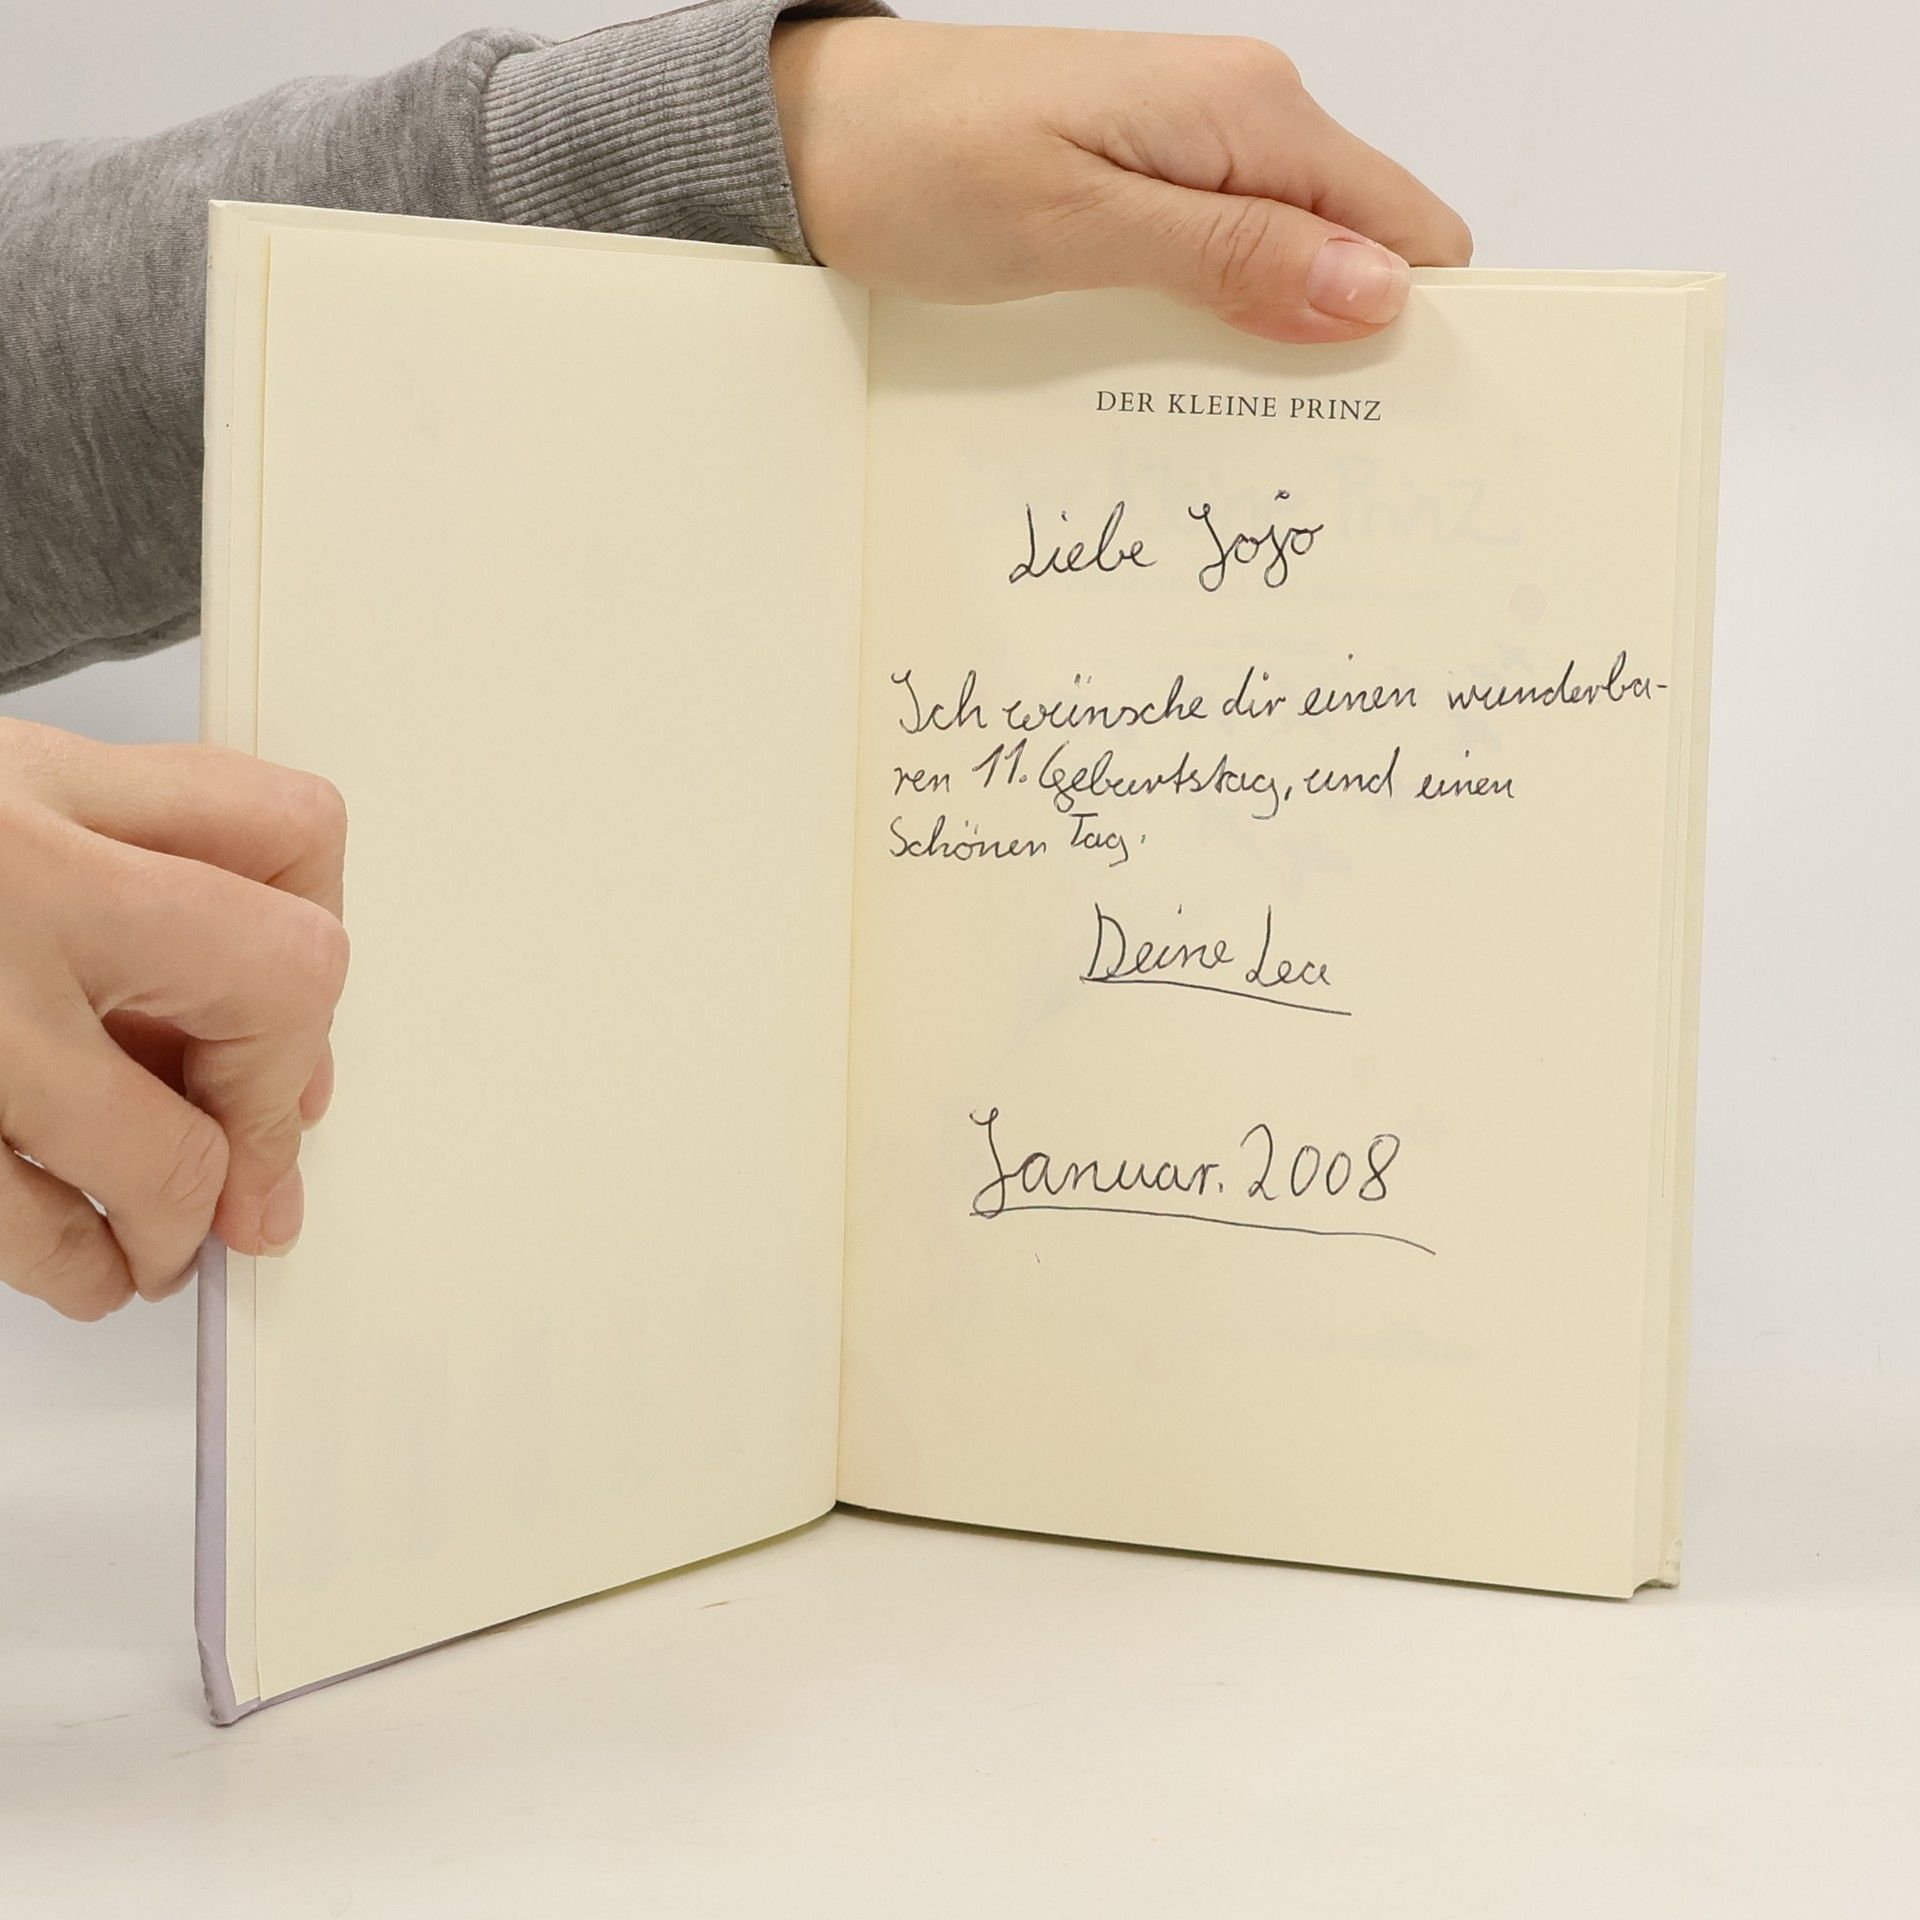 DER KLEINE PRINZ
Liebe Jojo
Ich wünsche dir einen wunderba-
ren 11. Geburtstag, und einen
Schönen Tag.
Deine Lea
Januar. 2008